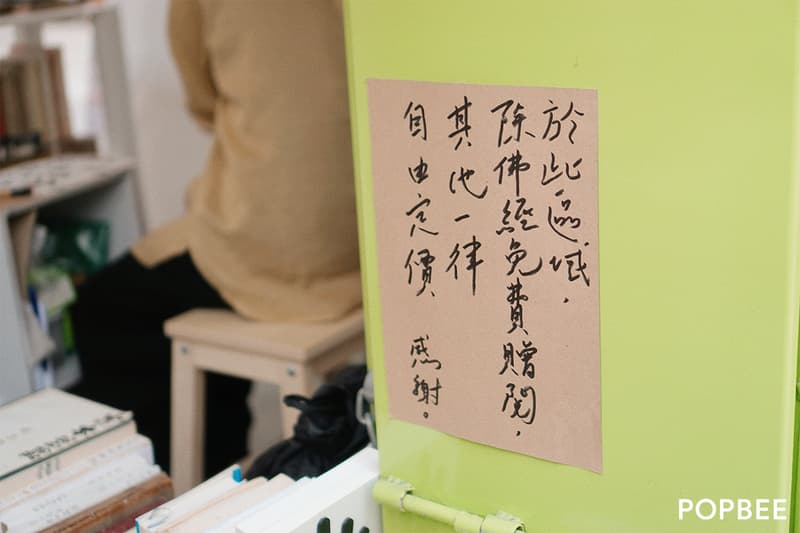 於此區域，
除佛經免費贈閱，
其他一律
自由定價 感謝。
POPBEE